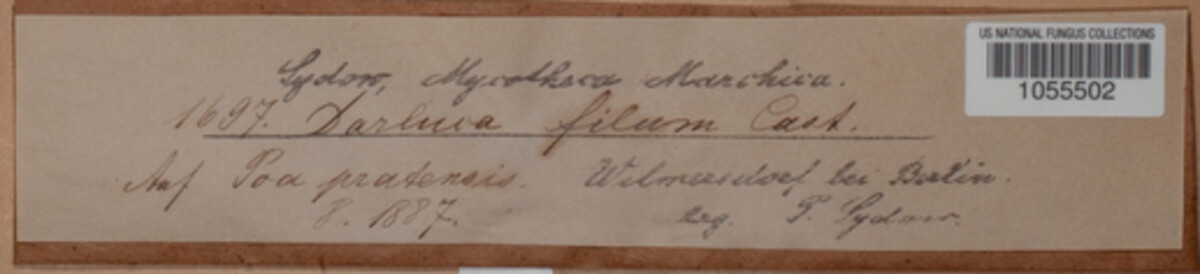 US NATIONAL FUNGUS COLLECTIONS
1055502
Sydow, Mycotheca Marchica.
1697. Darluca filum Cast.
Auf Poa pratensis. Wilmersdorf bei Berlin.
8. 1887. leg. P. Sydow.